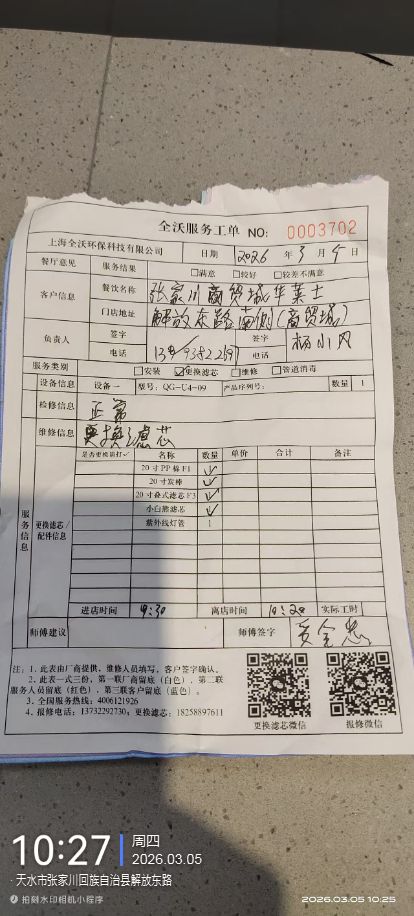 全沃服务工单 NO: 0003702
上海全沃环保科技有限公司 日期 2026 年 3 月 5 日
餐厅意见 服务结果 □满意 □较好 □较差不满意
客户信息 餐饮名称 张家川商贸城华莱士
门店地址 解放东路南侧(商贸城)
负责人 签字 签字 杨小风
电话 电话
服务类别 □安装 ☑更换滤芯 □维修 □管道消毒
设备信息 设备一 型号: QG-U4-09 产品序列号: 数量 1
检修信息 正常
维修信息 更换滤芯
服务信息 更换滤芯/配件信息
是否更换请打✓ 名称 数量 单价 合计 备注
20寸PP棉F1 ✓
20寸炭棒 ✓
20寸叠式滤芯F3 ✓
小白熊滤芯 ✓
紫外线灯管 1
进店时间 9:30 离店时间 10:20 实际工时
师傅建议 师傅签字
注: 1. 此表由厂商提供, 维修人员填写, 客户签字确认。
2. 此表一式三份, 第一联厂商留底 (白色), 第二联
服务人员留底 (红色), 第三联客户留底 (蓝色)。
3. 全国服务热线: 4006121926
4. 报修电话: 13732292730; 更换滤芯: 18258897611
更换滤芯微信 报修微信
10:27 周四
2026.03.05
· 天水市张家川回族自治县解放东路
拍刻水印相机小程序
2026.03.05 10:25